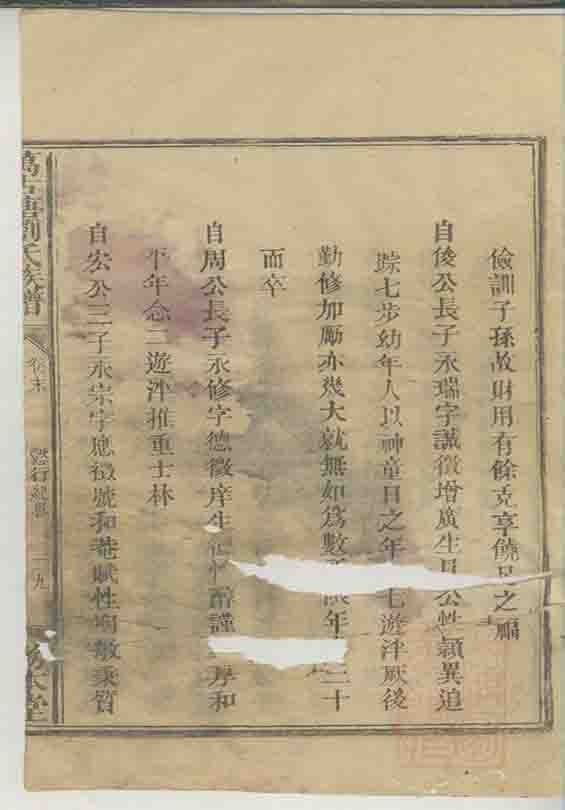 儉訓子孫故財用有餘克享饒足之福
自後公長子永瑞字誠徵增廣生員公性穎異追
踪七步幼年人以神童目之年 七遊泮厥後
勤修加勵亦幾大就無如爲數 年 三十
而卒
自周公長子永修字德徵庠生 性醇謹 厚和
平年念二遊泮推重士林
自宏公三子永宗字應徵號和菴賦性明敏秉質
劉氏族譜
卷末
懿行紀畧
二九